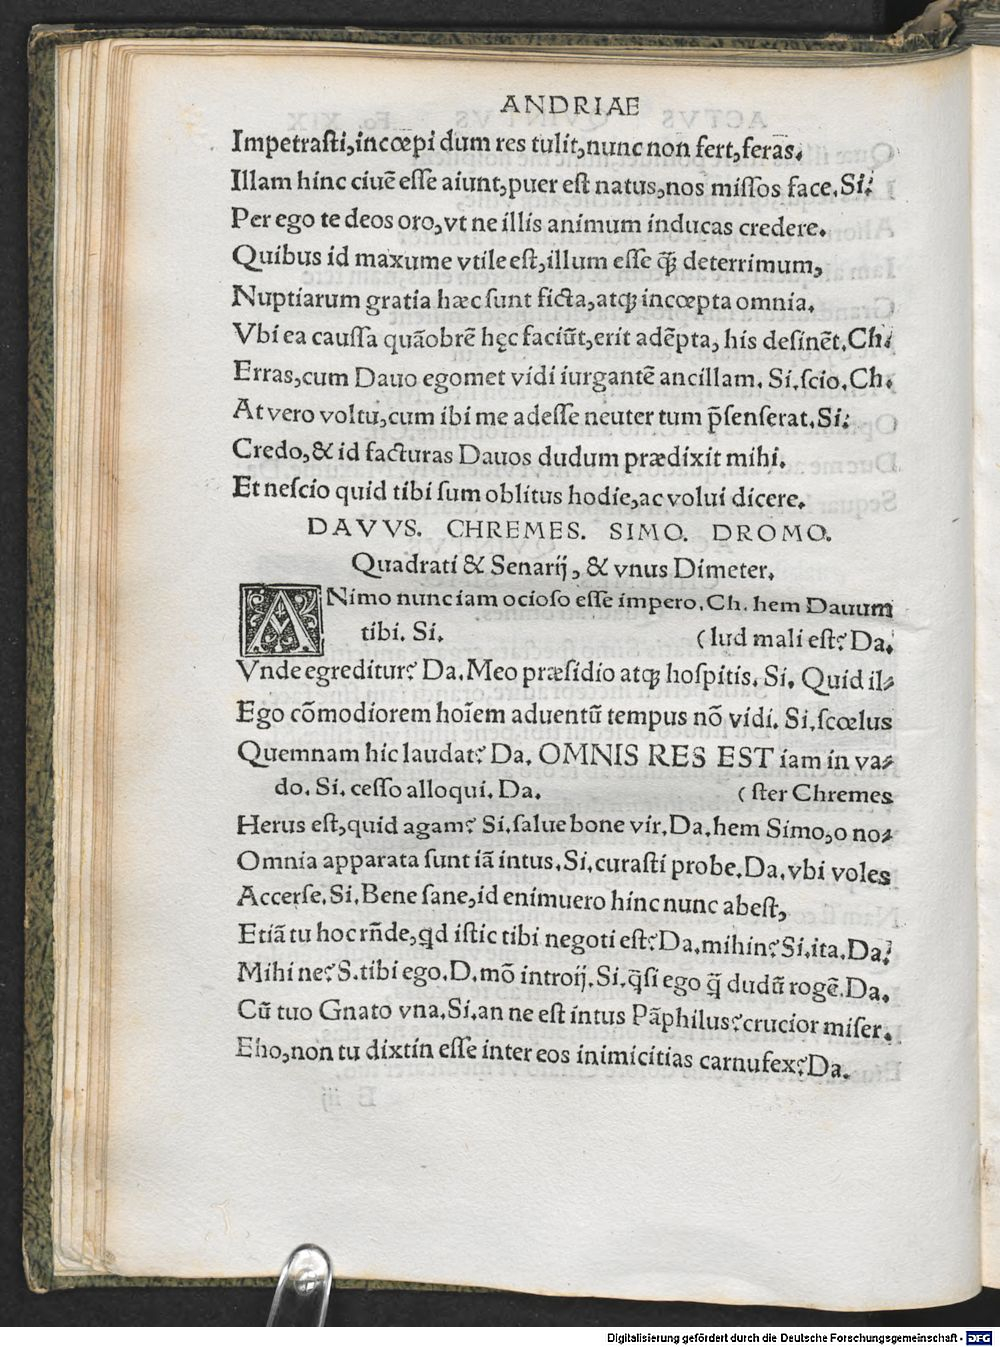 ANDRIAE
Impetrasti,incœpi dum res tulit,nunc non fert,feras.
Illam hinc ciuē esse aiunt,puer est natus,nos missos face.Si.
Per ego te deos oro,vt ne illis animum inducas credere.
Quibus id maxume vtile est,illum esse q̃ deterrimum,
Nuptiarum gratia hæc sunt ficta,atqꝫ incœpta omnia.
Vbi ea caussa quāobrē hęc faciūt,erit adēpta, his desinēt.Ch.
Erras,cum Dauo egomet vidi iurgantē ancillam. Si.scio.Ch.
At vero voltu,cum ibi me adesse neuter tum p̄senserat.Si.
Credo,& id facturas Dauos dudum prædixit mihi.
Et nescio quid tibi sum oblitus hodie,ac volui dicere.
DAVVS. CHREMES. SIMO. DROMO.
Quadrati & Senarij, & vnus Dimeter.
ANimo nunc iam ocioso esse impero.Ch. hem Dauum
tibi. Si. (lud mali est? Da.
Vnde egreditur? Da.Meo præsidio atqꝫ hospitis. Si. Quid il-
Ego cōmodiorem hoīem aduentū tempus nō vidi. Si.scœlus
Quemnam hic laudat? Da. OMNIS RES EST iam in va-
do. Si. cesso alloqui. Da. (ster Chremes
Herus est,quid agam? Si.salue bone vir.Da.hem Simo,o no-
Omnia apparata sunt iā intus.Si.curasti probe.Da.vbi voles
Accerse.Si.Bene sane,id enimuero hinc nunc abest,
Etiā tu hoc rn̄de,qd istic tibi negoti est? Da.mihin? Si.ita.Da.
Mihi ne? S.tibi ego.D.mō introij.Si.q̄si ego q̄ dudū rogē.Da.
Cū tuo Gnato vna.Si.an ne est intus Pāphilus?crucior miser.
Eho,non tu dixtin esse inter eos inimicitias carnufex? Da.
Digitalisierung gefördert durch die Deutsche Forschungsgemeinschaft - DFG